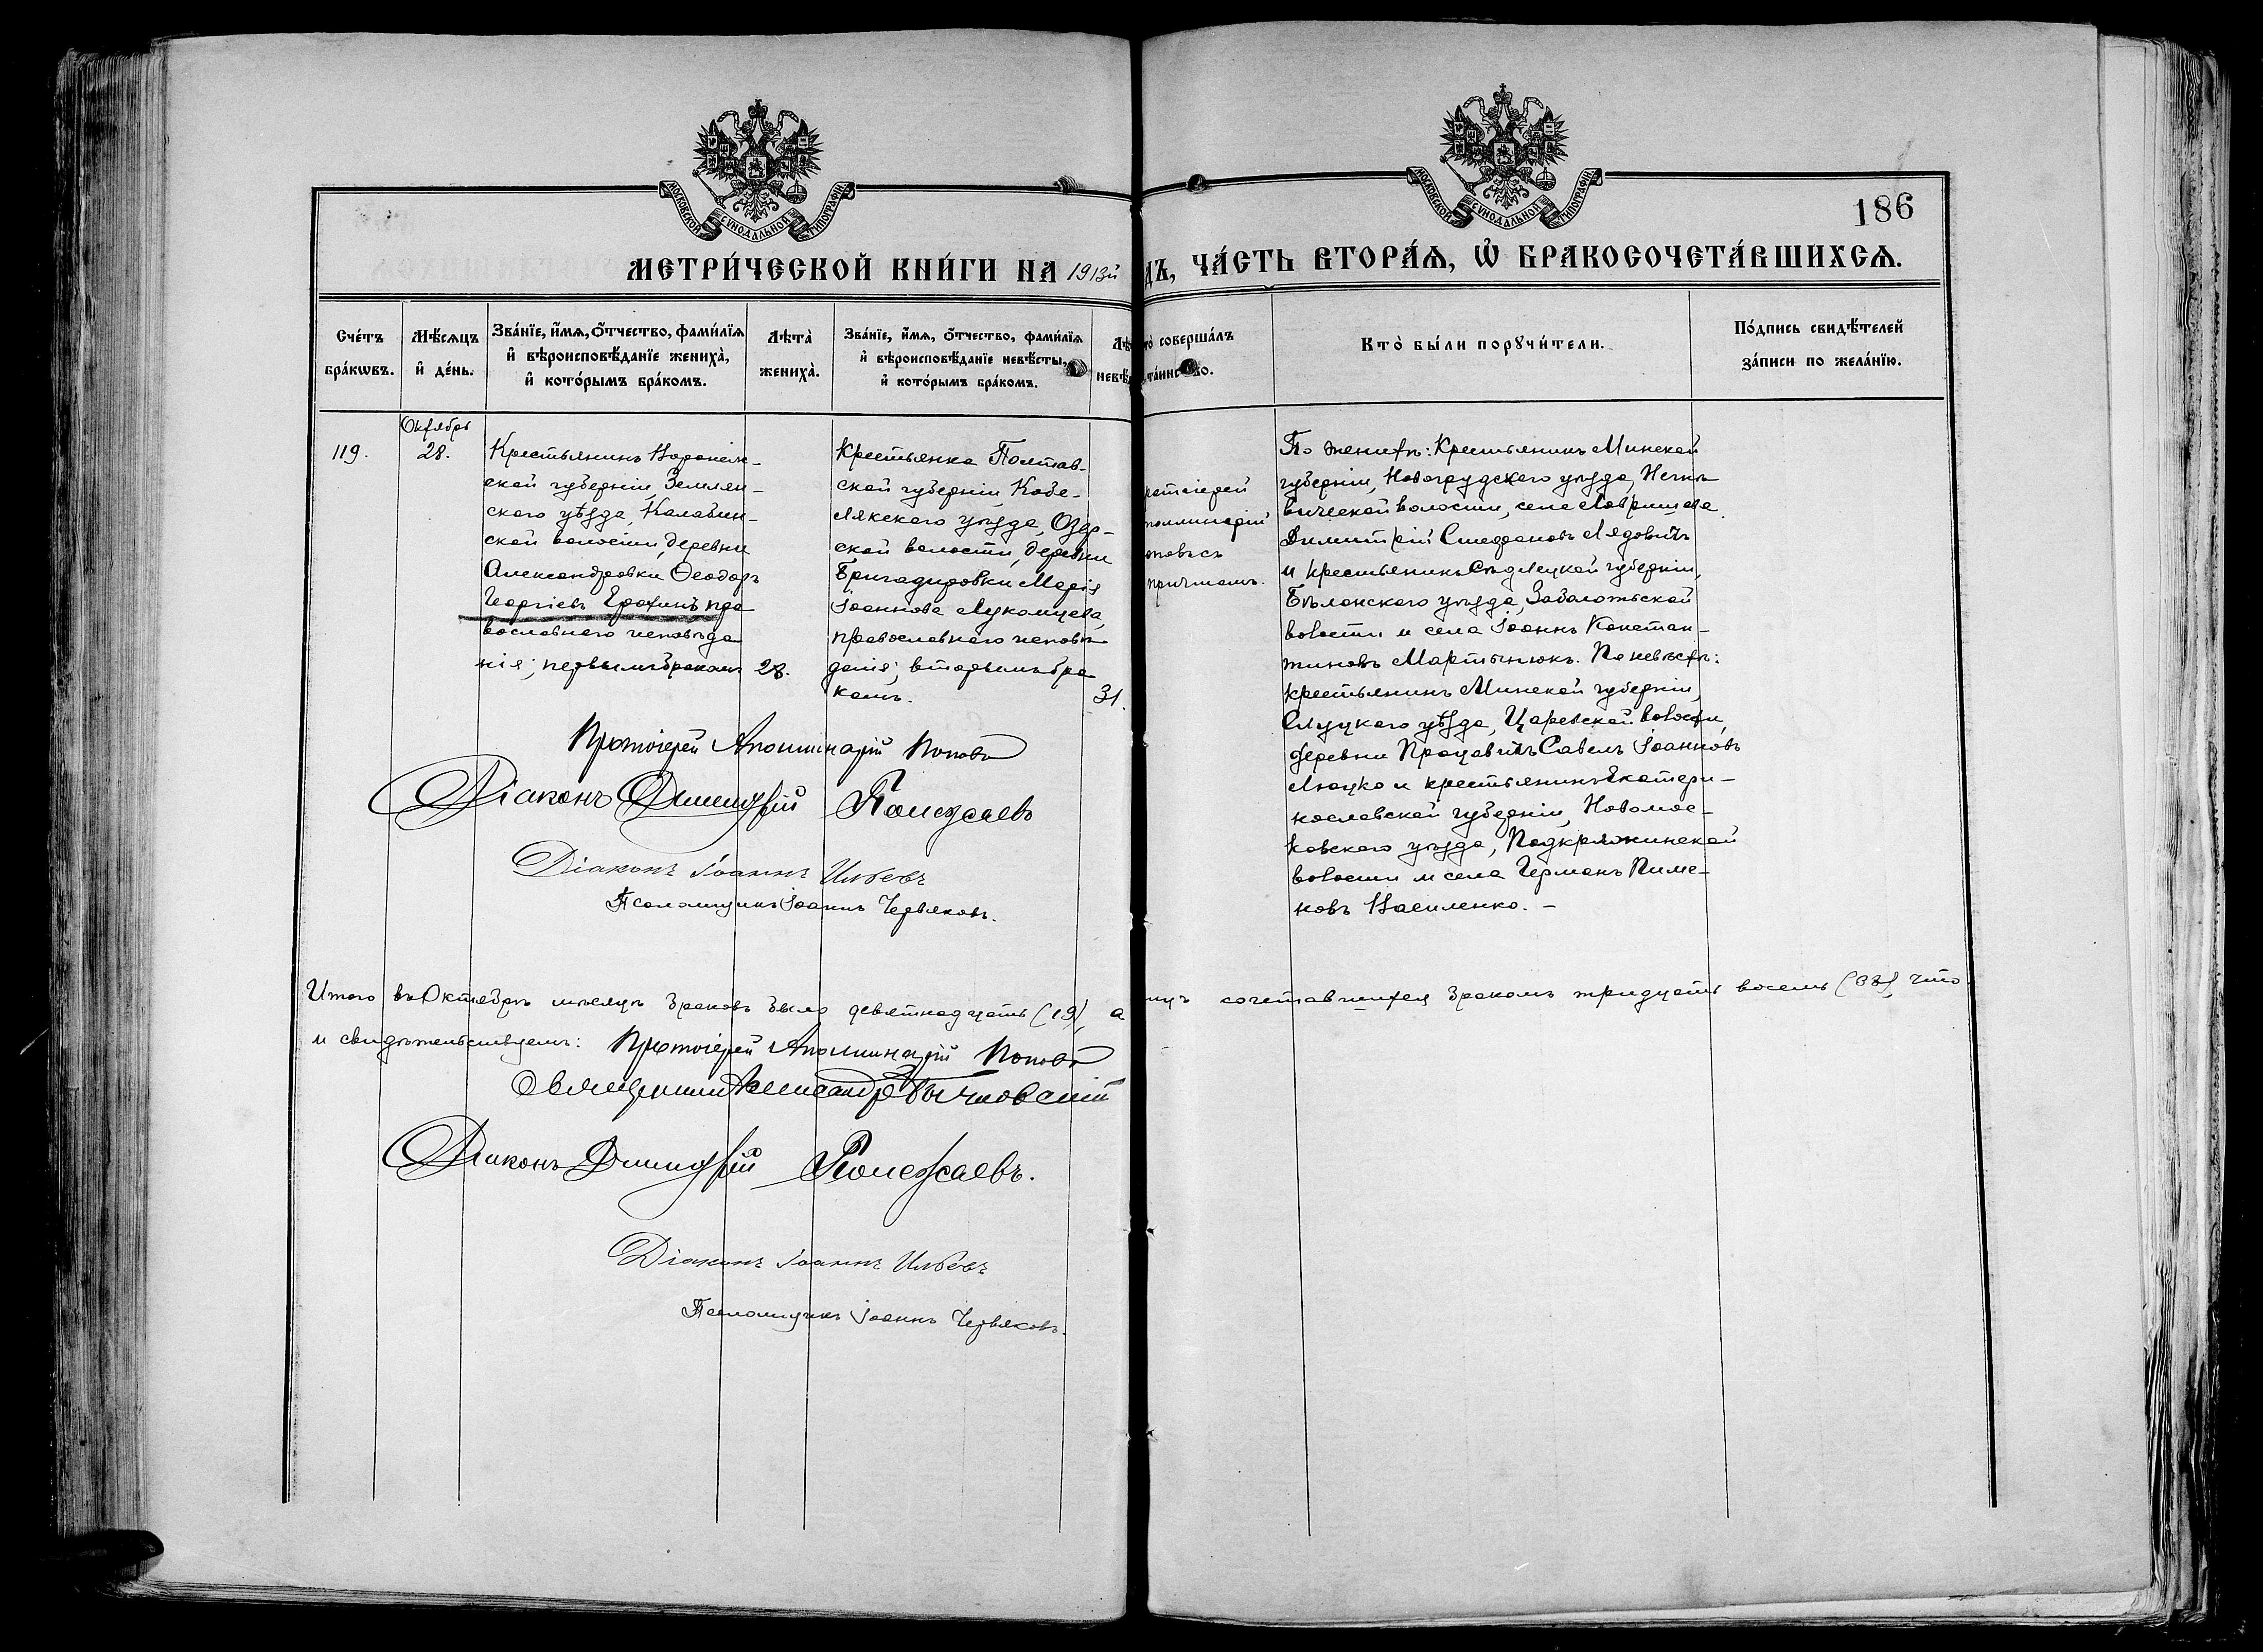 МОСКОВСКОЙ СѴНОДАЛЬНОЙ ТИПОГРАФІИ
МОСКОВСКОЙ СѴНОДАЛЬНОЙ ТИПОГРАФІИ
186
МЕТРИ́ЧЕСКОЙ КНИ́ГИ НА 1913й
ДЪ, ЧА́СТЬ ВТОРА́Ѧ, Ѡ҆ БРАКОСОЧЕТА́ВШИХСѦ.
Сче́тъ
бра́кѡвъ.
Мѣ́сѧцъ
и҆ де́нь.
Зва́нїе, и҆́мѧ, ѻ҆́тчество, фами́лїѧ
и҆ вѣроисповѣ́данїе жениха̀,
и҆ кото́рымъ бра́комъ.
Лѣта̀
жениха̀.
Зва́нїе, и҆́мѧ, ѻ҆́тчество, фами́лїѧ
и҆ вѣроисповѣ́данїе невѣ́сты,
и҆ кото́рымъ бра́комъ.
Лѣ
невѣ́
то̀ соверша́лъ
та́инство.
Кто̀ бы́ли порꙋчи́тели.
По́дпись свидѣ́телей
за́писи по жела́нїю.
119.
Октябрь
28.
Крестьянинъ Воронеж-
ской губерніи, Землян-
ского уѣзда, Калабин-
ской волости, деревни
Александровки Ѳеодоръ
Георгіевъ Ерохинъ пра
вославнаго исповѣда
нія; первымъ бракомъ
28.
Крестьянка Полтав-
ской губерніи, Кобе-
лякского уѣзда, Озер-
ской волости, деревни
Бригадировки Марія
Іоаннова Лукомцева,
православнаго исповѣ
данія; вторымъ бра
комъ.
31.
ротоіерей
поллинарій
оповъ съ
причтомъ.
По женихѣ: Крестьянинъ Минской
губерніи, Новогрудскаго уѣзда, Негнѣ
вической волости, села Лавришева
Димитрій Стефановъ Лядовичъ
и крестьянинъ Сѣдлецкой губерніи,
Бѣлонского уѣзда, Заболотьской
волости и села Іоаннъ Констан-
тиновъ Мартынюкъ. По невѣстѣ:
крестьянинъ Минской губерніи,
Слуцкаго уѣзда, Царевской волости,
деревни Процевичъ Савелъ Іоанновъ
Люцко и крестьянинъ Екатери-
нославской губерніи, Новомос-
ковскаго уѣзда, Подкряжинской
волости и села Германъ Пиме-
новъ Василенко. –
Протоіерей Аполлинарій Поповъ
Діаконъ Димитрій Полежаевъ
Діаконъ Іоаннъ
Псаломщикъ Іоаннъ Червяковъ.
Итого въ Октябрѣ мѣсяцѣ браковъ было девятнадцать (19), а
сочетавшихся бракомъ тридцать восемь (38), что
и свидѣтельствуемъ: Протоіерей Аполлинарій Поповъ
Священникъ Александръ
Діаконъ Димитрій Полежаевъ.
Діаконъ Іоаннъ
Псаломщикъ Іоаннъ Червяковъ.